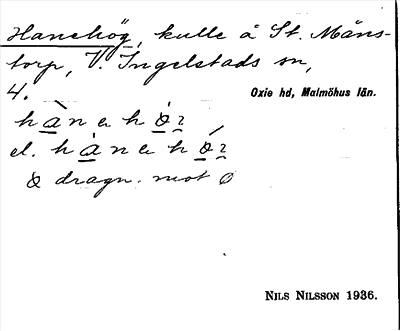 Hanehög, kulle å St. Måns-
torp, V. Ingelstads sn,
4.
Oxie hd, Malmöhus län.
el.
dragn. mot
NILS NILSSON 1936.